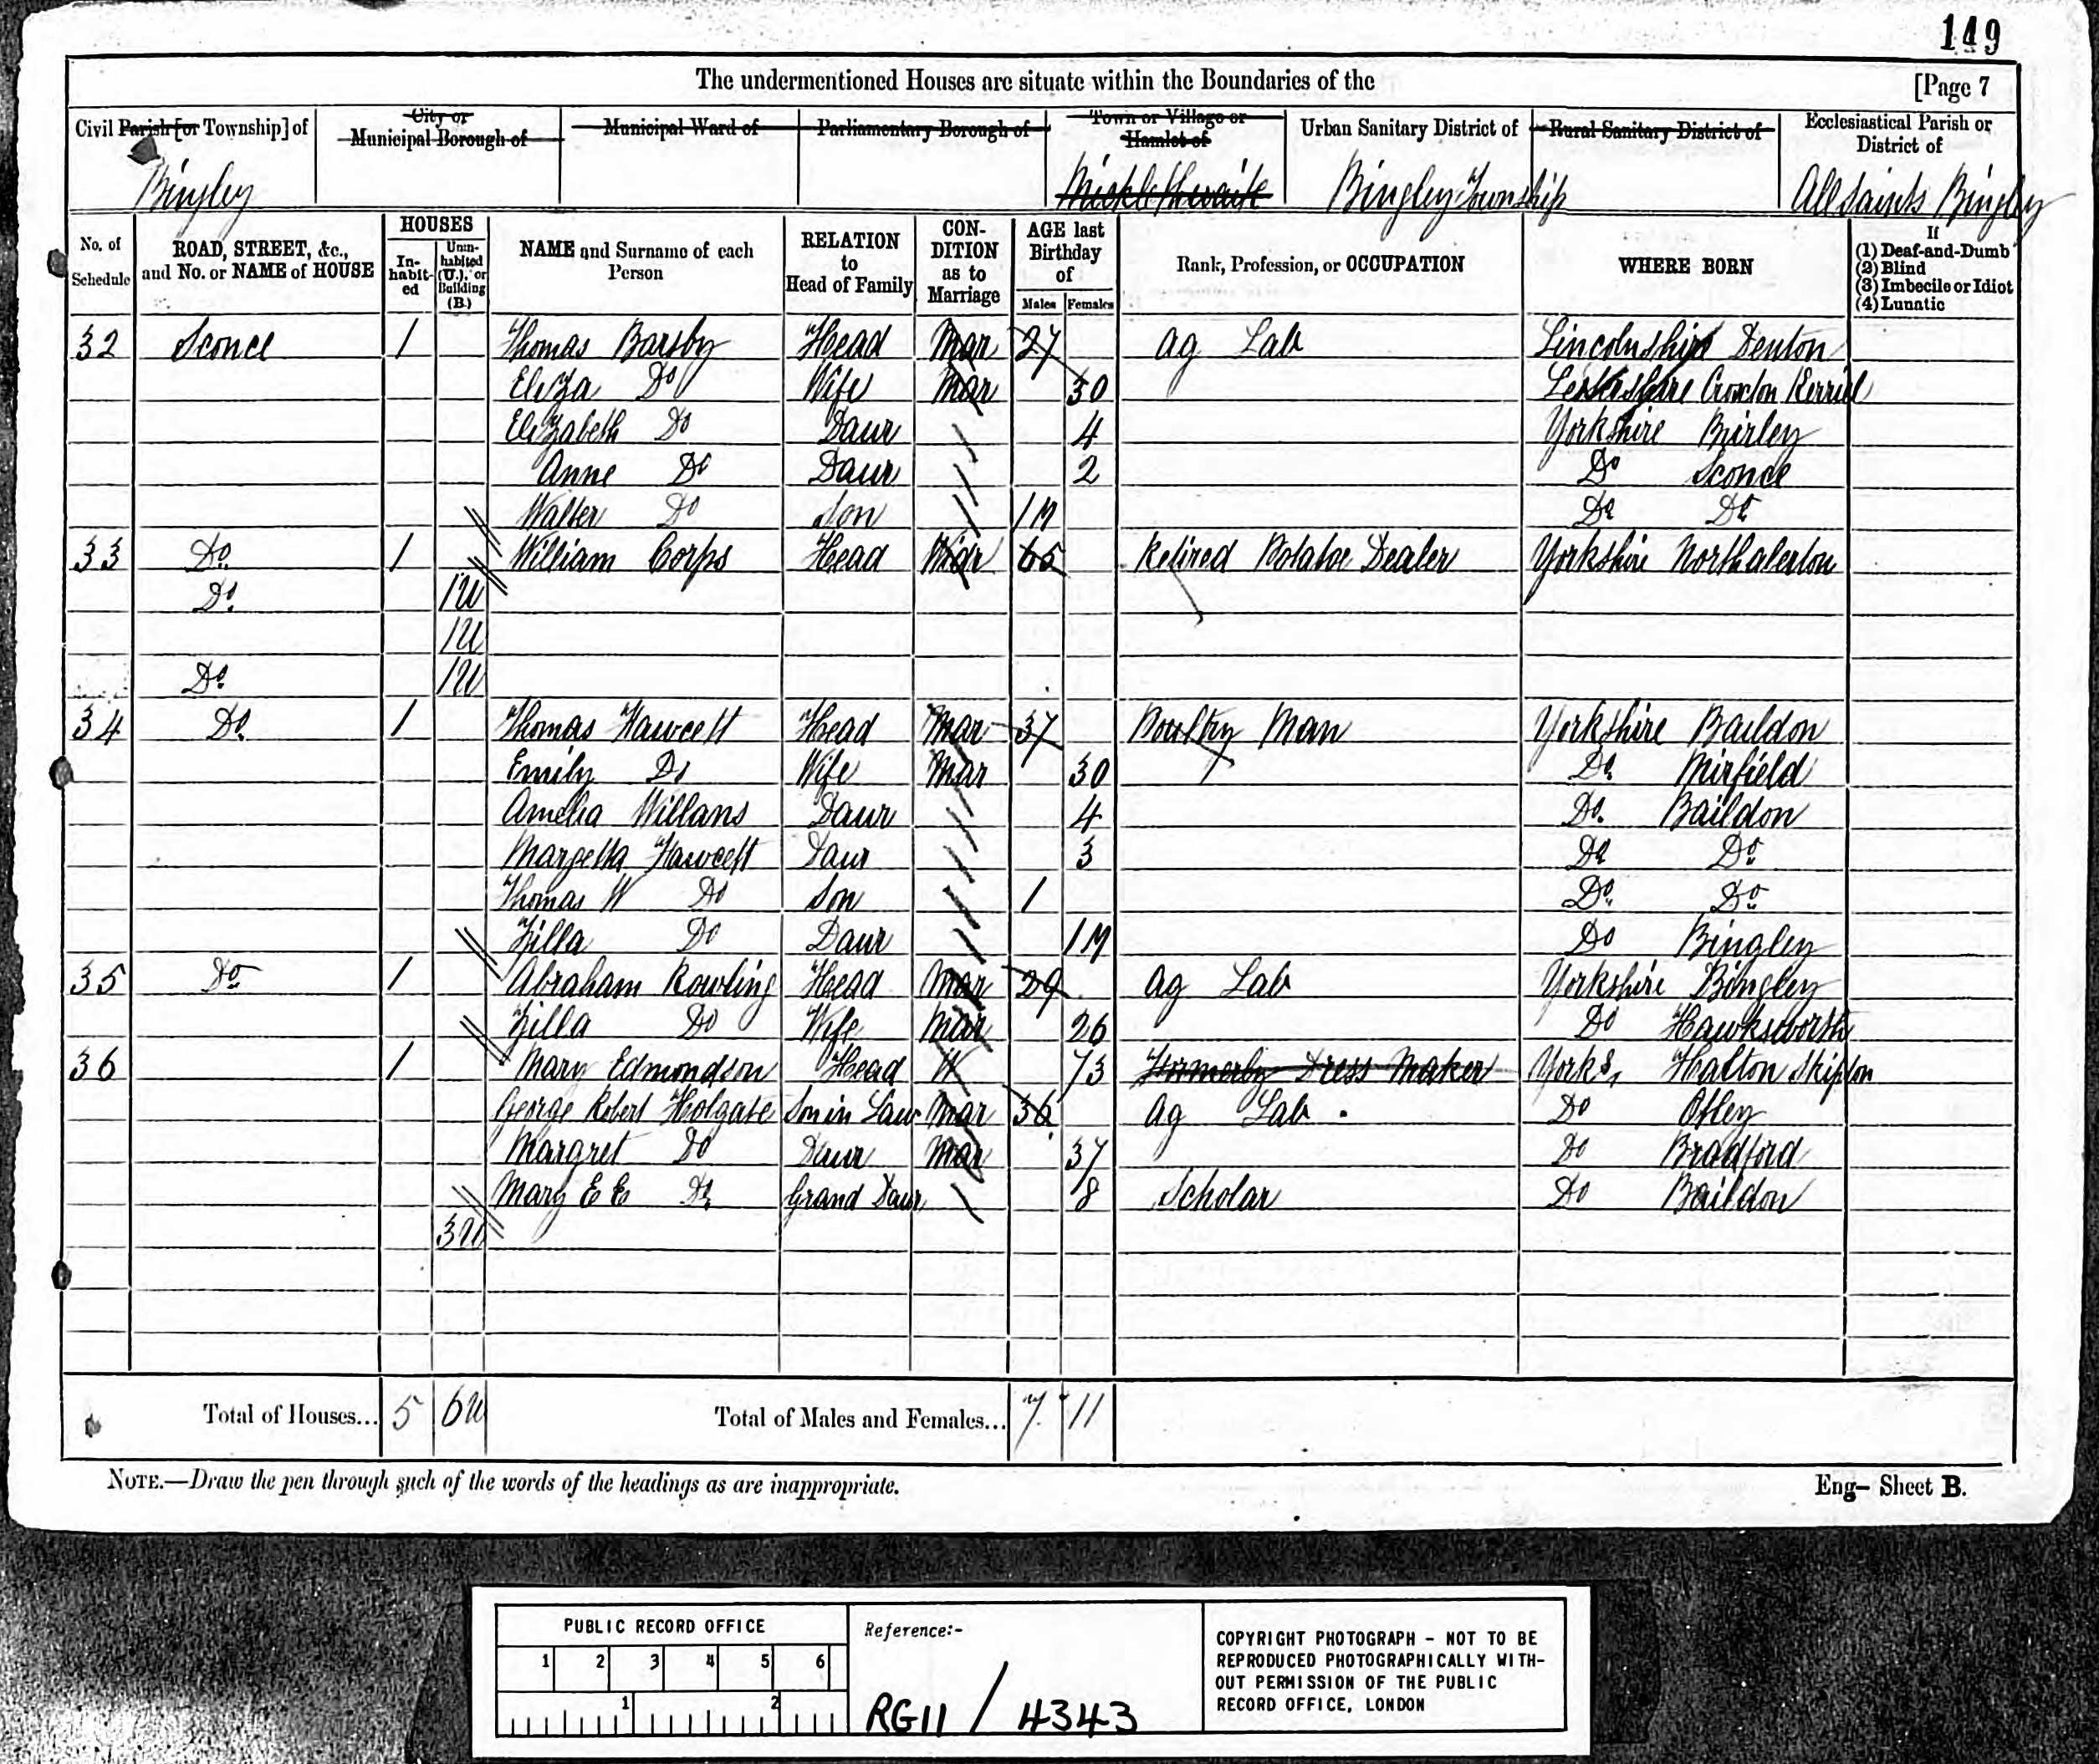 149
The undermentioned Houses are situate within the Boundaries of the [Page 7
Civil Parish [or Township] of City or Municipal Borough of Municipal Ward of Parliamentary Borough of Town or Village or Hamlet of Urban Sanitary District of Rural Sanitary District of Ecclesiastical Parish or District of
Bingley Micklethwaite Bingley Township All Saints Bingley
No. of Schedule ROAD, STREET, &c., and No. or NAME of HOUSE HOUSES In-habit-ed Unin-habited (U.), or Building (B.) NAME and Surname of each Person RELATION to Head of Family CON-DITION as to Marriage AGE last Birthday of Males Females Rank, Profession, or OCCUPATION WHERE BORN If (1) Deaf-and-Dumb (2) Blind (3) Imbecile or Idiot (4) Lunatic
32 Sconce 1 Thomas Barsby Head Mar 27 Ag Lab Lincolnshire Denton
Eliza Do Wife Mar 30 Croxton Kerriel
Elizabeth Do Daur 4 Yorkshire Burley
Anne Do Daur 2 Do Sconce
Walter Do Son 1M Do Do
33 Do 1 William Corps Head Widr 65 Retired Potatoe Dealer Yorkshire Northalerton
Do 1U
1U
Do 1U
34 Do 1 Thomas Fawcett Head Mar 37 Poultry Man Yorkshire Baildon
Emily Do Wife Mar 30 Do Mirfield
Amelia Willans Daur 4 Do Baildon
Margetta Fawcett Daur 3 Do Do
Thomas W Do Son 1 Do Do
Zilla Do Daur 1M Do Bingley
35 Do 1 Abraham Rowling Head Mar 29 Ag Lab Yorkshire Bingley
Zilla Do Wife Mar 26 Do Hawksworth
36 1 Mary Edmondson Head W 73 Formerly Dress Maker Yorks, Halton Skipton
George Robert Holgate Son in Law Mar 36 Ag Lab Do Otley
Margret Do Daur Mar 37 Do Bradford
Mary E E Do Grand Daur 8 Scholar Do Baildon
3U
Total of Houses... 5 6U Total of Males and Females... 7 11
NOTE.—Draw the pen through such of the words of the headings as are inappropriate. Eng– Sheet B.
PUBLIC RECORD OFFICE
1 2 3 4 5 6
1 2
Reference:-
RG11 / 4343
COPYRIGHT PHOTOGRAPH - NOT TO BE
REPRODUCED PHOTOGRAPHICALLY WITH-
OUT PERMISSION OF THE PUBLIC
RECORD OFFICE, LONDON